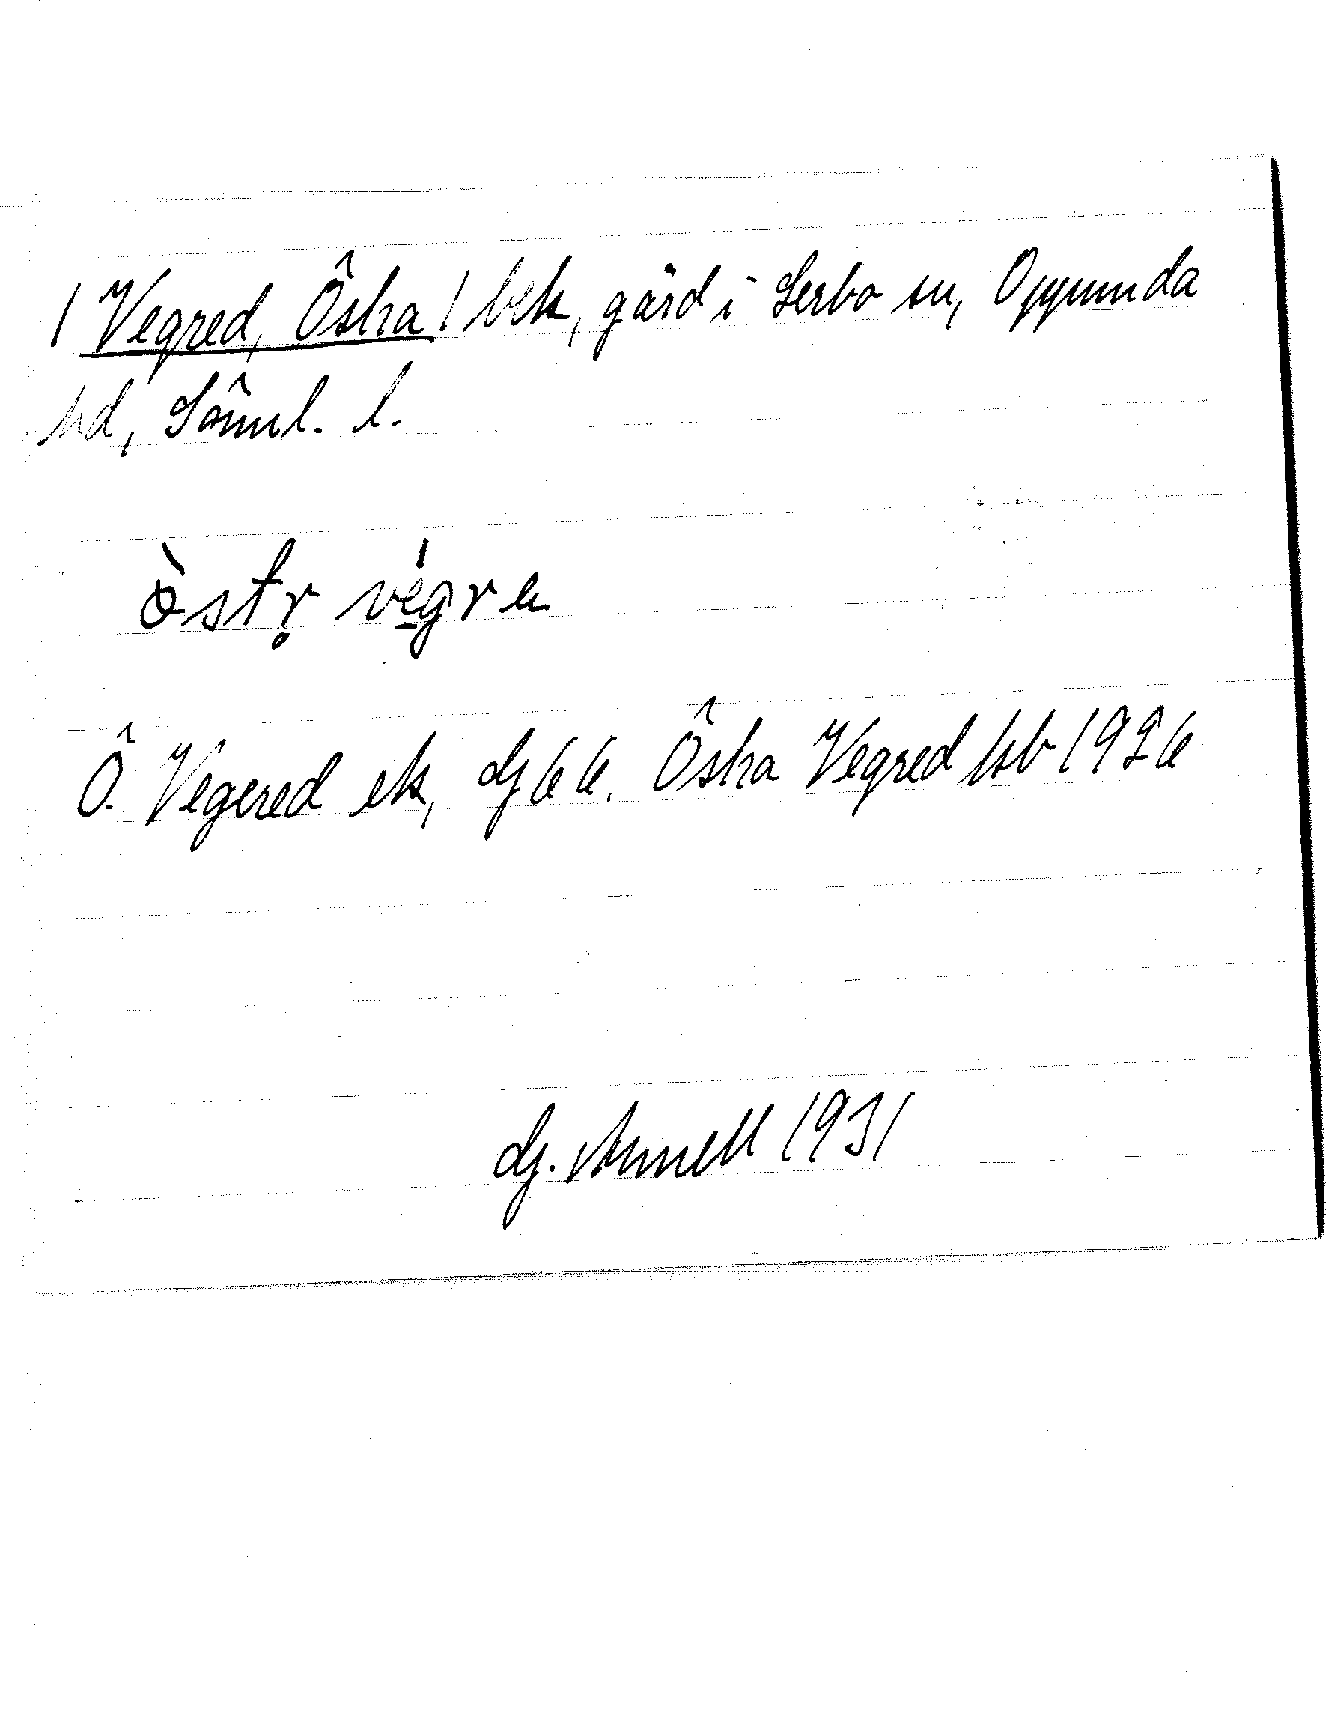 /Vegred, Östra/ bek, gård i Lerbo sn, Oppunda
hd, Söml. l.
òstr̥ végre
Ö. Vegered ek, dj 66. Östra Vegred hb 1926
dj. Arnell 1931